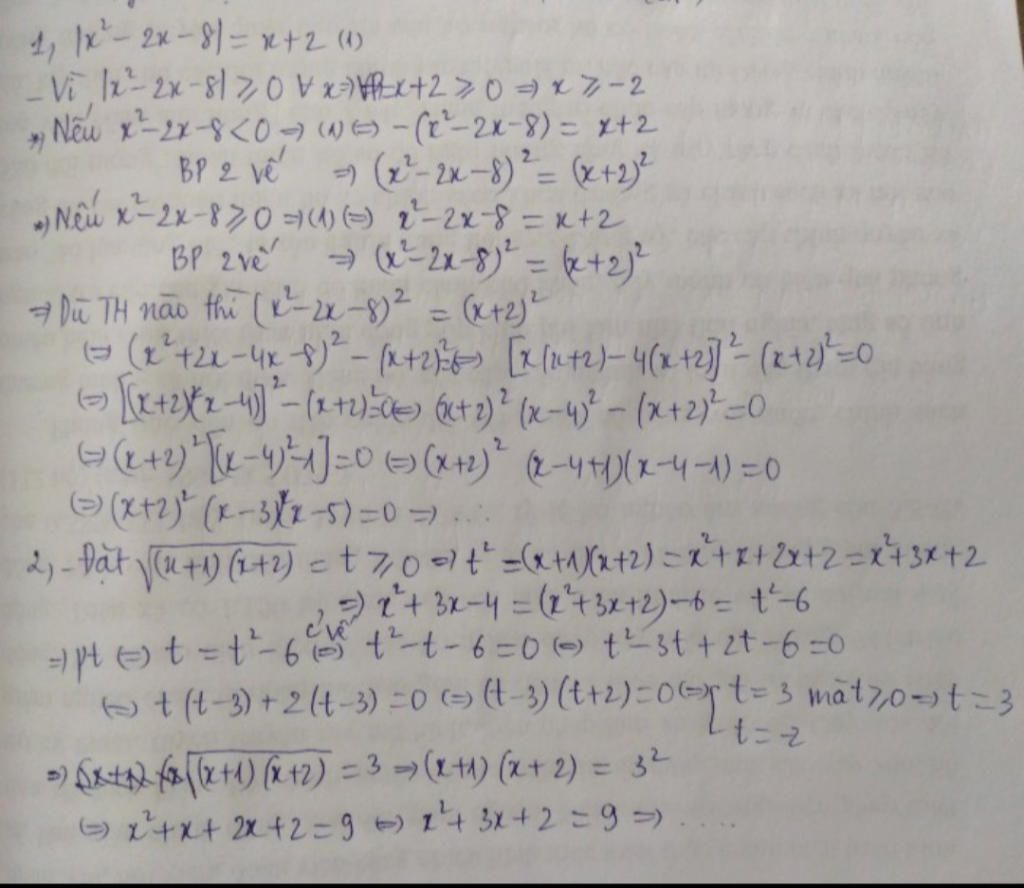 1, |x² - 2x - 8| = x + 2 (1)
- Vì |x² - 2x - 8| ≥ 0 ∀ x ⇒ x + 2 ≥ 0 ⇒ x ≥ -2
⇒ Nếu x² - 2x - 8 < 0 ⇒ (1) ⇔ -(x² - 2x - 8) = x + 2
BP 2 vế ⇒ (x² - 2x - 8)² = (x + 2)²
⇒ Nếu x² - 2x - 8 ≥ 0 ⇒ (1) ⇔ x² - 2x - 8 = x + 2
BP 2 vế ⇒ (x² - 2x - 8)² = (x + 2)²
⇒ Dù TH nào thì (x² - 2x - 8)² = (x + 2)²
⇔ (x² + 2x - 4x - 8)² - (x + 2)² = 0 ⇔ [x(x + 2) - 4(x + 2)]² - (x + 2)² = 0
⇔ [(x + 2)(x - 4)]² - (x + 2)² = 0 ⇔ (x + 2)² (x - 4)² - (x + 2)² = 0
⇔ (x + 2)² [(x - 4)² - 1] = 0 ⇔ (x + 2)² (x - 4 + 1)(x - 4 - 1) = 0
⇔ (x + 2)² (x - 3)(x - 5) = 0 ⇒ ...
2, - Đặt √(x + 1)(x + 2) = t ≥ 0 ⇒ t² = (x + 1)(x + 2) = x² + x + 2x + 2 = x² + 3x + 2
⇒ x² + 3x - 4 = (x² + 3x + 2) - 6 = t² - 6
⇒ pt ⇔ t = t² - 6 c² vế ⇔ t² - t - 6 = 0 ⇔ t² - 3t + 2t - 6 = 0
⇔ t(t - 3) + 2(t - 3) = 0 ⇔ (t - 3)(t + 2) = 0 ⇔ [t = 3 mà t ≥ 0 ⇒ t = 3
t = -2
⇒ √(x + 1)(x + 2) = 3 ⇒ (x + 1)(x + 2) = 3²
⇔ x² + x + 2x + 2 = 9 ⇔ x² + 3x + 2 = 9 ⇒ .....